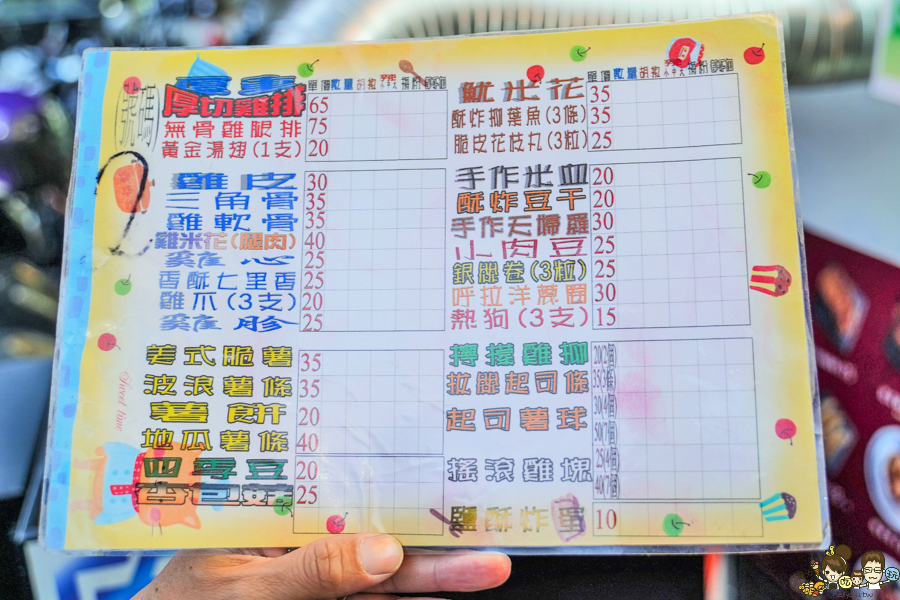 號碼
單價 數量 胡椒
厚切雞排 65
無骨雞腿排 75
黃金湯翅(1支) 20
雞皮 30
三角骨 35
雞軟骨 35
雞米花(腿肉) 40
雞心 25
香酥七里香 25
雞爪(3支) 20
雞胗 25
美式脆薯 35
波浪薯條 35
薯餅 20
地瓜薯條 40
四季豆 20
杏包菇 25
Sweet time
單價 數量 胡椒
魷米花 35
酥炸柳葉魚(3條) 35
脆皮花枝丸(3粒) 25
手作米血 20
酥炸豆干 20
手作天婦羅 30
小肉豆 25
銀絲卷(3粒) 25
呼拉洋蔥圈 30
熱狗(3支) 15
檸檬雞柳 20(2個)
拉絲起司條 35(3條)
起司薯球 30(4個)
50(7個)
搖滾雞塊 25(4個)
40(7個)
鹽酥炸蛋 10